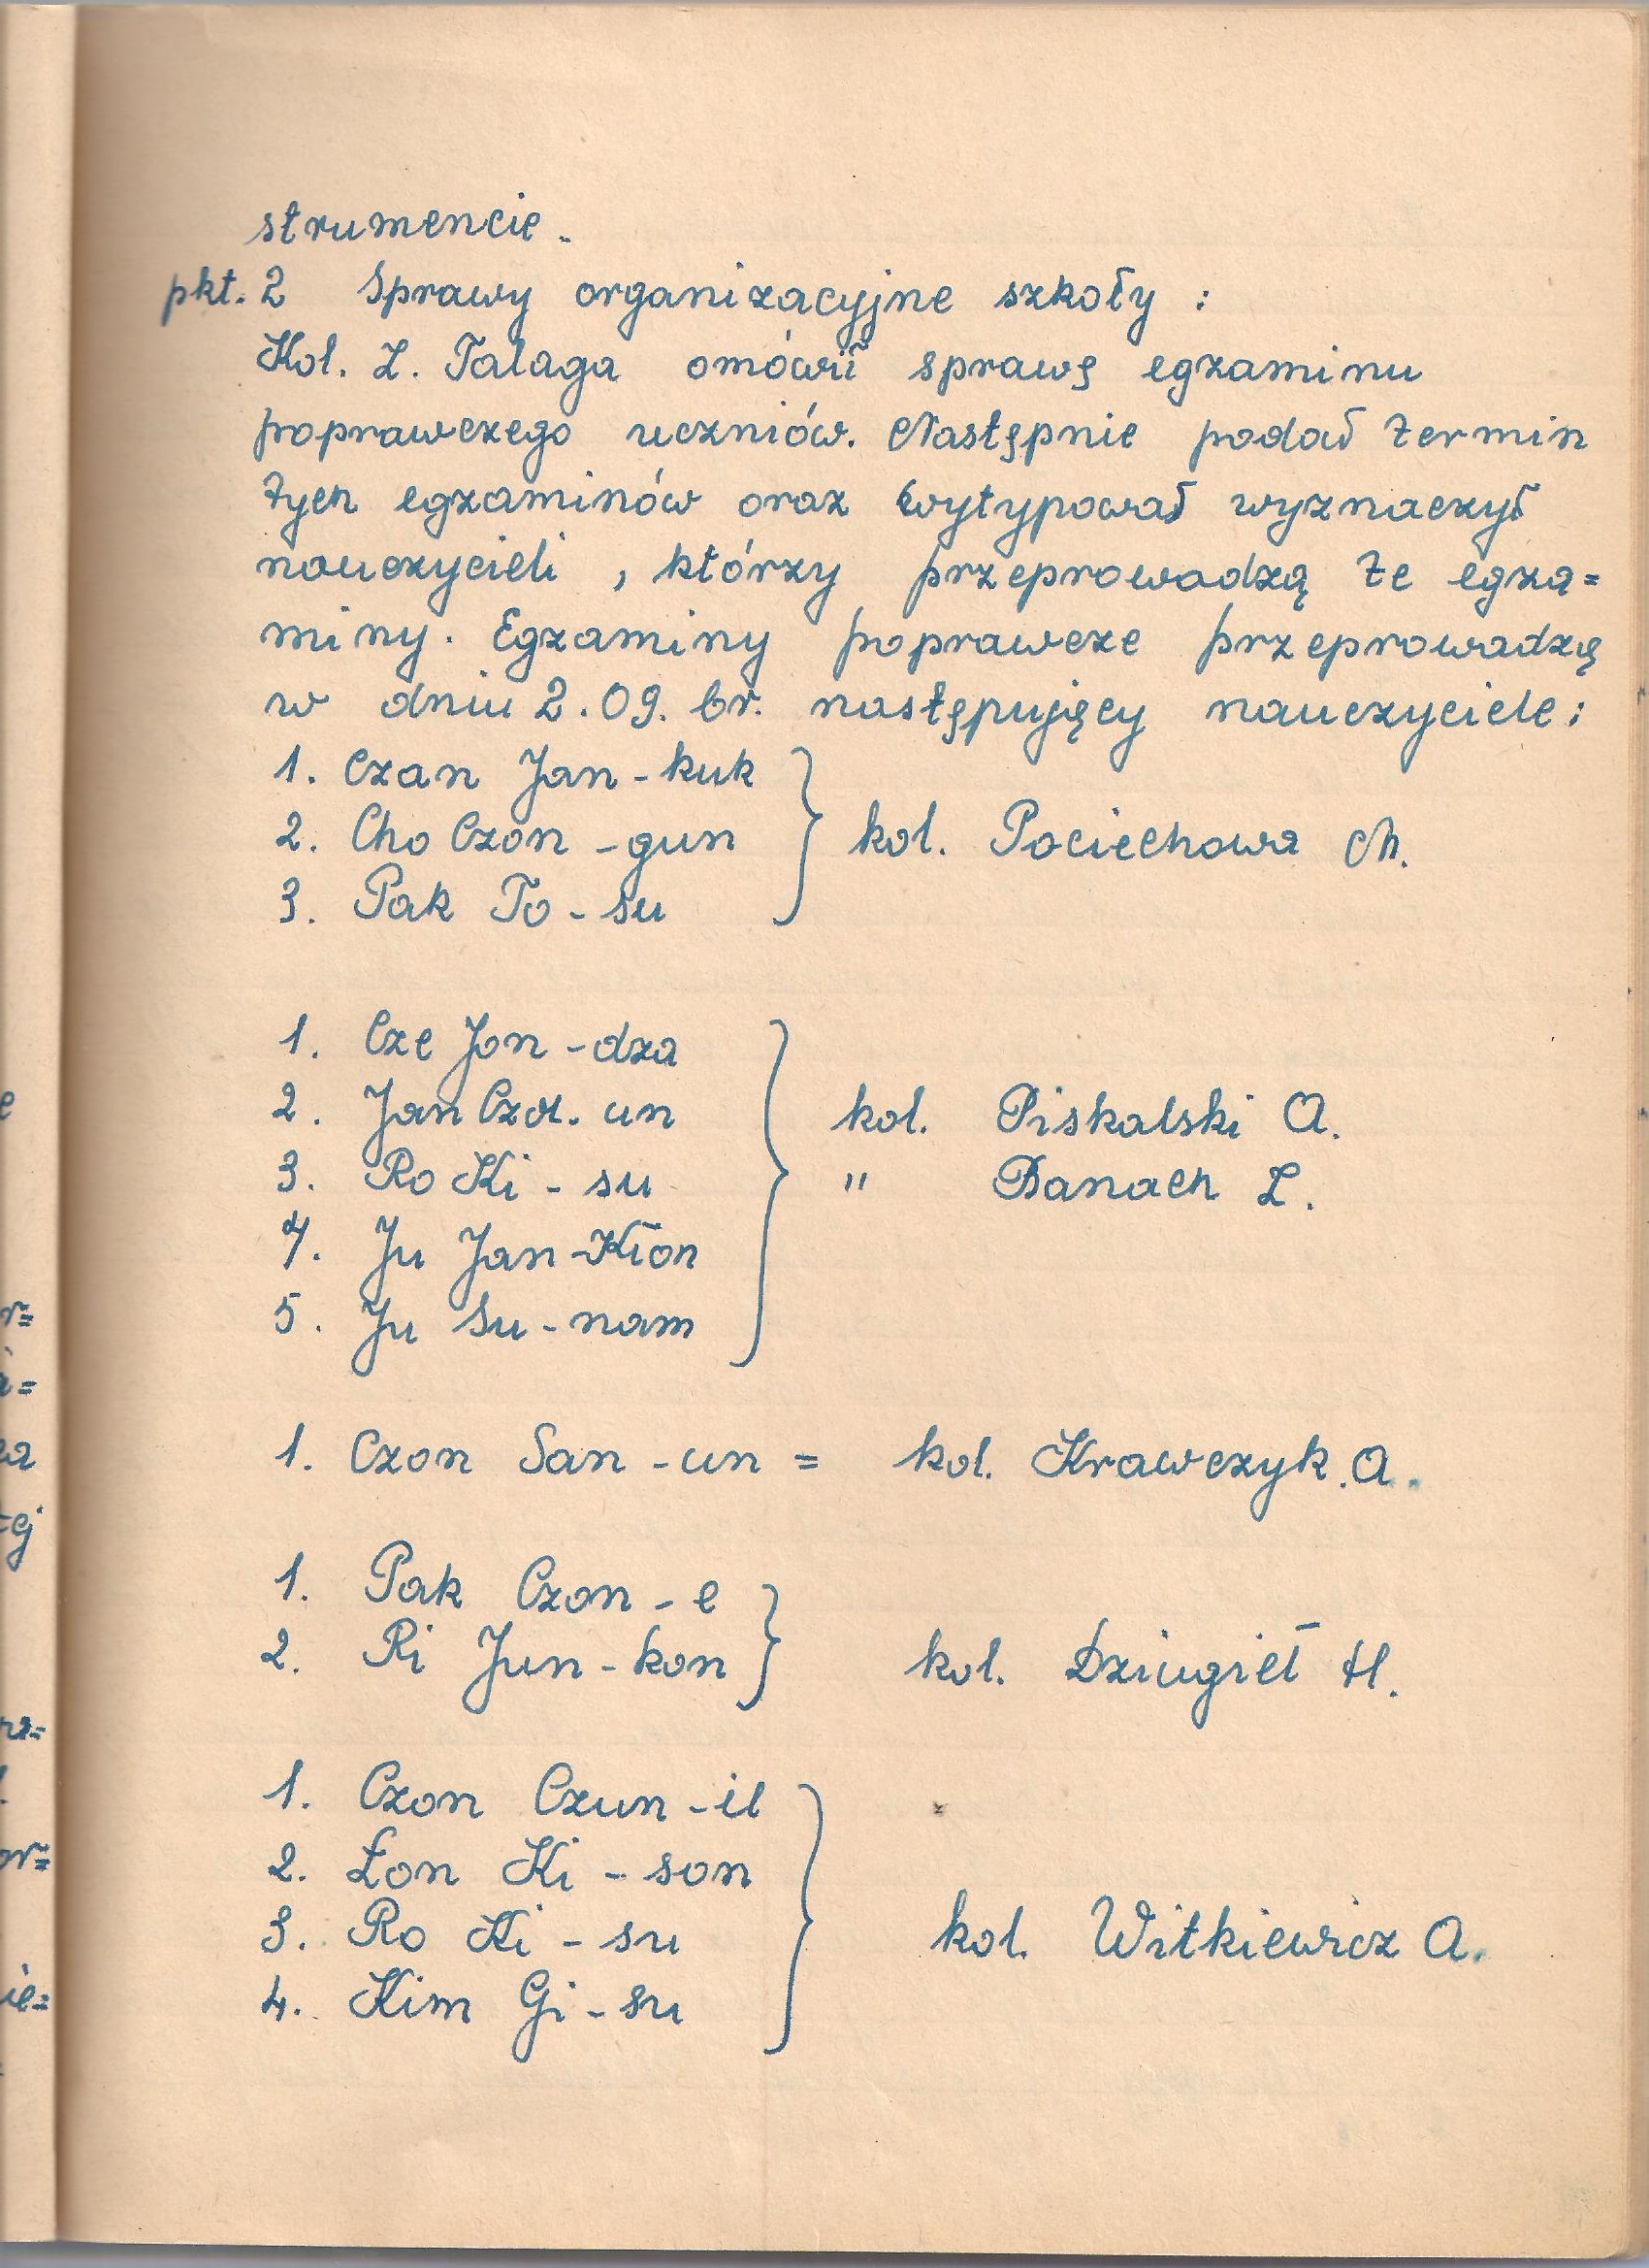 strumencie.
pkt. 2 Sprawy organizacyjne szkoły :
Kol. L. Talaga omówił sprawę egzaminu
poprawczego uczniów. Następnie podał termin
tych egzaminów oraz wytypował wyznaczył
nauczycieli , którzy przeprowadzą te egza=
miny. Egzaminy poprawcze przeprowadzą
w dniu 2.09. br. następujący nauczyciele:
1. Czan Jan - kuk
2. Cho Czon - gun
3. Pak To - su
kol. Pociechowa M.
1. Cze Jon - dza
2. Jan Czol. un
3. Ro Ki - su
4. Ju Jan - Kion
5. Ju Su - nam
kol. Piskalski A.
" Banach L.
1. Czon San - un = kol. Krawczyk. A.
1. Pak Czon - e
2. Ri Jun - kon
kol. Dziugieł H.
1. Czon Czun - il
2. Łon Ki - son
3. Ro Ki - su
4. Kim Gi - su
kol. Witkiewicz A.